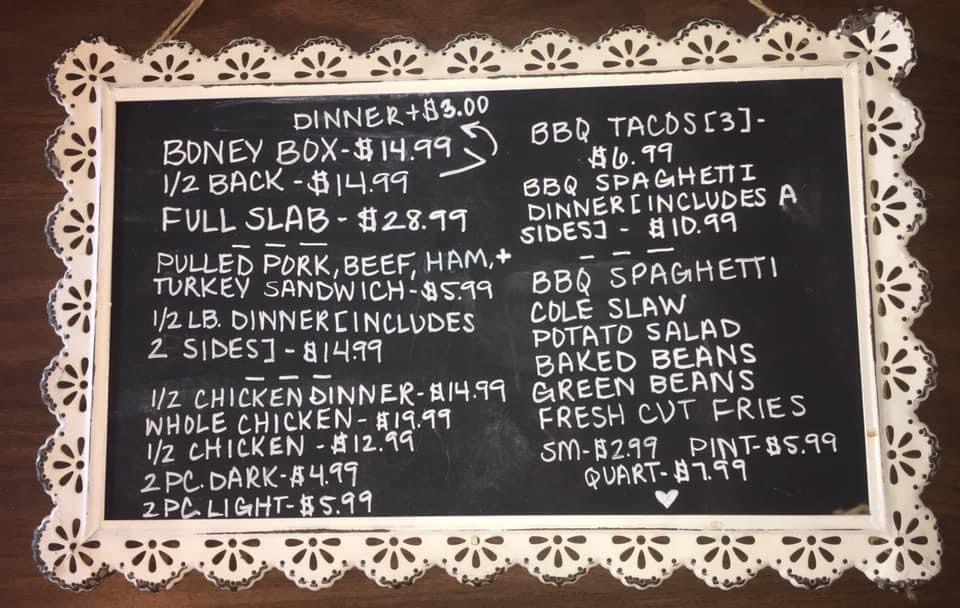 DINNER + $3.00
BONEY BOX - $14.99
1/2 BACK - $14.99
FULL SLAB - $28.99
PULLED PORK, BEEF, HAM, +
TURKEY SANDWICH - $5.99
1/2 LB. DINNER [INCLUDES
2 SIDES] - $14.99
1/2 CHICKEN DINNER - $14.99
WHOLE CHICKEN - $19.99
1/2 CHICKEN - $12.99
2 PC. DARK - $4.99
2 PC. LIGHT - $5.99
BBQ TACOS [3] -
$6.99
BBQ SPAGHETTI
DINNER [INCLUDES A
SIDES] - $10.99
BBQ SPAGHETTI
COLE SLAW
POTATO SALAD
BAKED BEANS
GREEN BEANS
FRESH CUT FRIES
SM - $2.99 PINT - $5.99
QUART - $7.99